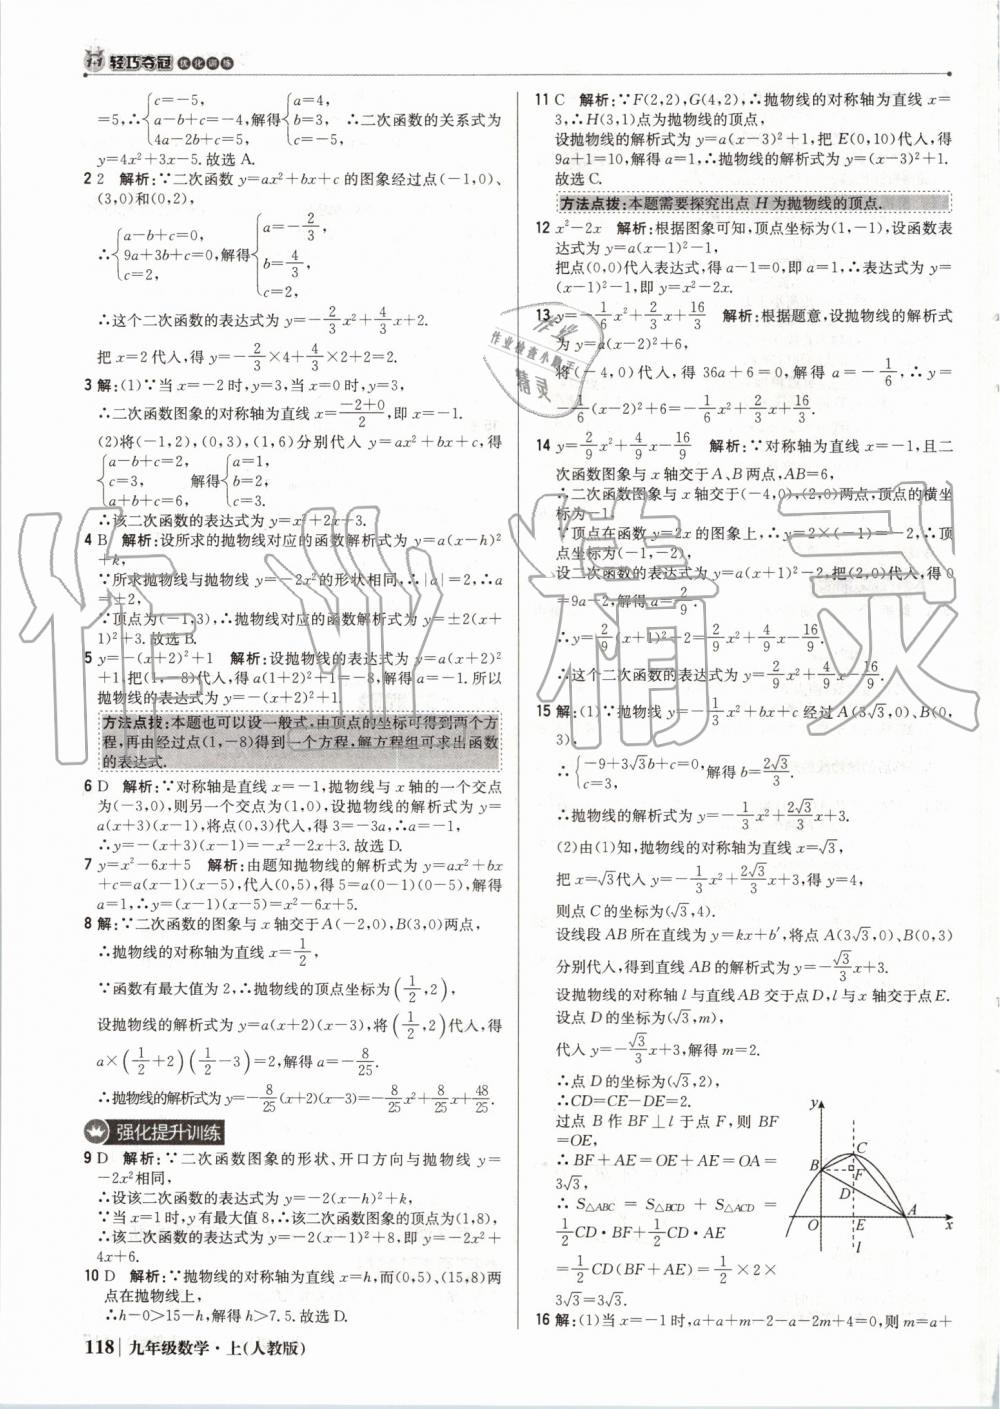 1+1 轻巧夺冠 优化训练
=5,∴{c=-5, a-b+c=-4, 4a-2b+c=5, 解得{a=4, b=3, c=-5, ∴二次函数的关系式为
y=4x²+3x-5.故选 A.
2 2 解析:∵二次函数 y=ax²+bx+c 的图象经过点(-1,0)、
(3,0)和(0,2),
∴{a-b+c=0, 9a+3b+c=0, c=2, 解得{a=-2/3, b=4/3, c=2,
∴这个二次函数的表达式为 y=-2/3x²+4/3x+2.
把 x=2 代入,得 y=-2/3×4+4/3×2+2=2.
3 解:(1)∵当 x=-2 时,y=3,当 x=0 时,y=3,
∴二次函数图象的对称轴为直线 x=(-2+0)/2,即 x=-1.
(2)将(-1,2),(0,3),(1,6)分别代入 y=ax²+bx+c,得
{a-b+c=2, c=3, a+b+c=6, 解得{a=1, b=2, c=3.
∴该二次函数的表达式为 y=x²+2x+3.
4 B 解析:设所求的抛物线对应的函数解析式为 y=a(x-h)²
+k,
∵所求抛物线与抛物线 y=-2x²的形状相同,∴|a|=2,∴a
=±2,
∵顶点为(-1,3),∴抛物线对应的函数解析式为 y=±2(x+
1)²+3.故选 B.
5 y=-(x+2)²+1 解析:设抛物线的表达式为 y=a(x+2)²
+1,把(1,-8)代入,得 a(1+2)²+1=-8,解得 a=-1.所以
抛物线的表达式为 y=-(x+2)²+1.
方法点拨:本题也可以设一般式,由顶点的坐标可得到两个方
程,再由经过点(1,-8)得到一个方程,解方程组可求出函数
的表达式.
6 D 解析:∵对称轴是直线 x=-1,抛物线与 x 轴的一个交点
为(-3,0),则另一个交点为(1,0),设抛物线的解析式为 y=
a(x+3)(x-1),将点(0,3)代入,得 3=-3a,∴a=-1,
∴y=-(x+3)(x-1)=-x²-2x+3.故选 D.
7 y=x²-6x+5 解析:由题知抛物线的解析式为 y=ax²+bx
+c=a(x-1)(x-5),代入(0,5),得 5=a(0-1)(0-5),解得
a=1,∴y=(x-1)(x-5)=x²-6x+5.
8 解:∵二次函数的图象与 x 轴交于 A(-2,0),B(3,0)两点,
∴抛物线的对称轴为直线 x=1/2,
∵函数有最大值为 2,∴抛物线的顶点坐标为(1/2,2),
设抛物线的解析式为 y=a(x+2)(x-3),将(1/2,2)代入,得
a×(1/2+2)(1/2-3)=2,解得 a=-8/25.
∴抛物线的解析式为 y=-8/25(x+2)(x-3)=-8/25x²+8/25x+48/25.
强化提升训练
9 D 解析:∵二次函数图象的形状、开口方向与抛物线 y=
-2x²相同,
∴设该二次函数的表达式为 y=-2(x-h)²+k,
∵当 x=1 时,y 有最大值 8,∴该二次函数图象的顶点为(1,8),
∴该二次函数的表达式为 y=-2(x-1)²+8,即 y=-2x²+
4x+6.
10 D 解析:∵抛物线的对称轴为直线 x=h,而(0,5)、(15,8)两
点在抛物线上,
∴h-0>15-h,解得 h>7.5.故选 D.
11 C 解析:∵F(2,2),G(4,2),∴抛物线的对称轴为直线 x=
3,∴H(3,1)点为抛物线的顶点,
设抛物线的解析式为 y=a(x-3)²+1,把 E(0,10)代入,得
9a+1=10,解得 a=1,∴抛物线的解析式为 y=(x-3)²+1.
故选 C.
方法点拨:本题需要探究出点 H 为抛物线的顶点.
12 x²-2x 解析:根据图象可知,顶点坐标为(1,-1),设函数表
达式为 y=a(x-1)²-1,
把点(0,0)代入表达式,得 a-1=0,即 a=1,∴表达式为 y=
(x-1)²-1,即 y=x²-2x.
13 y=-1/6x²+2/3x+16/3 解析:根据题意,设抛物线的解析式
为 y=a(x-2)²+6,
将(-4,0)代入,得 36a+6=0,解得 a=-1/6,∴y=
-1/6(x-2)²+6=-1/6x²+2/3x+16/3.
14 y=2/9x²+4/9x-16/9 解析:∵对称轴为直线 x=-1,且二
次函数图象与 x 轴交于 A、B 两点,AB=6,
∴二次函数图象与 x 轴交于(-4,0),(2,0)两点,顶点的横坐
标为-1.
∵顶点在函数 y=2x 的图象上,∴y=2×(-1)=-2,∴顶
点坐标为(-1,-2),
设二次函数的表达式为 y=a(x+1)²-2,把(2,0)代入,得 0
=9a-2,解得 a=2/9.
∴y=2/9(x+1)²-2=2/9x²+4/9x-16/9.
∴这个二次函数的表达式为 y=2/9x²+4/9x-16/9.
15 解:(1)∵抛物线 y=-1/3x²+bx+c 经过 A(3√3,0)、B(0,
3),
∴{-9+3√3b+c=0, c=3, 解得 b=2√3/3.
∴抛物线的解析式为 y=-1/3x²+2√3/3x+3.
(2)由(1)知,抛物线的对称轴为直线 x=√3,
把 x=√3代入 y=-1/3x²+2√3/3x+3,得 y=4,
则点 C 的坐标为(√3,4).
设线段 AB 所在直线为 y=kx+b′,将点 A(3√3,0)、B(0,3)
分别代入,得到直线 AB 的解析式为 y=-√3/3x+3.
设抛物线的对称轴 l 与直线 AB 交于点 D,l 与 x 轴交于点 E.
设点 D 的坐标为(√3,m),
代入 y=-√3/3x+3,解得 m=2.
∴点 D 的坐标为(√3,2),
∴CD=CE-DE=2.
过点 B 作 BF⊥l 于点 F,则 BF
=OE,
∴BF+AE=OE+AE=OA=
3√3,
∴S△ABC=S△BCD+S△ACD=
1/2CD·BF+1/2CD·AE
=1/2CD(BF+AE)=1/2×2×
3√3=3√3.
y
C
B
F
D
A
O
E
x
l
16 解:(1)当 x=1 时,a+a+m-2-a-2m+4=0,则 m=a+
118 九年级数学·上(人教版)
作业
作业检查小助手
精灵
作业精灵